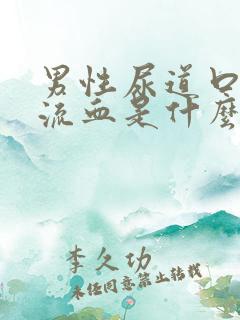 男性尿道口
流血是什麼
李久功
未经同意禁止转载